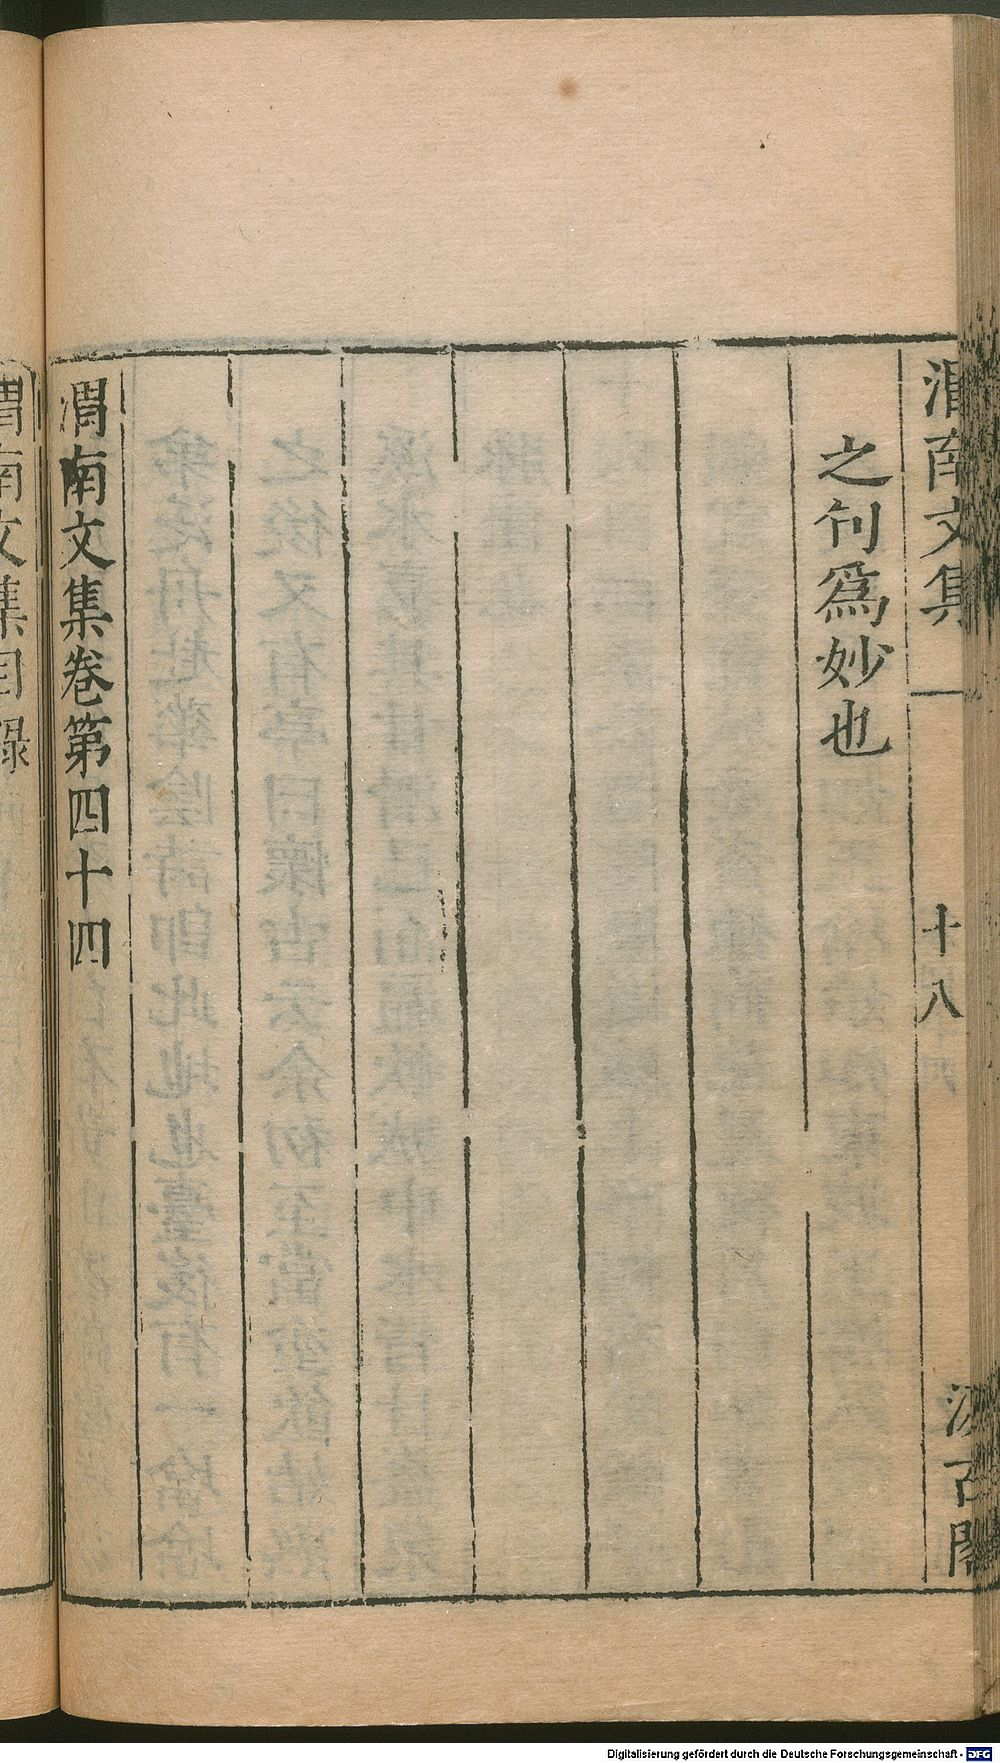 渭南文集
十八
汲古閣
之句爲妙也
渭南文集卷第四十四
渭南文集目錄
Digitalisierung gefördert durch die Deutsche Forschungsgemeinschaft - DFG